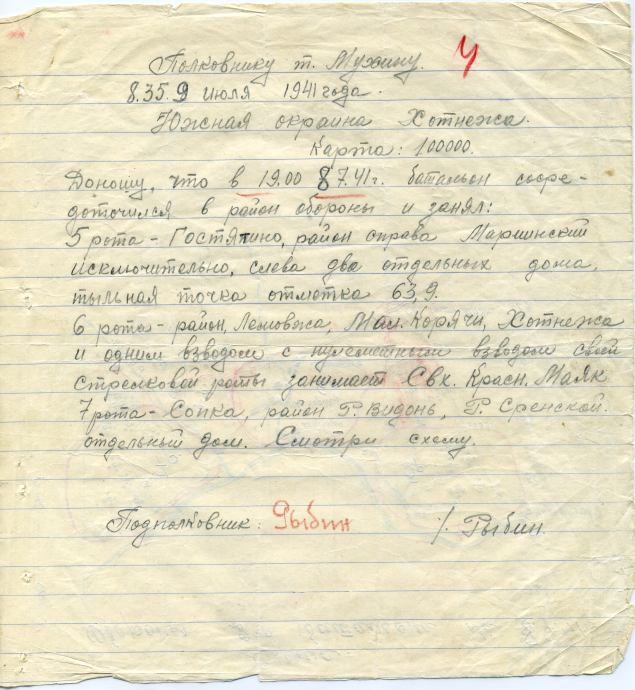 4
Полковнику т. Мухину.
8.35. 9 июля 1941 года.
Южная окраина Хотнежа.
Карта: 100000.
Доношу, что в 19.00 8 7.41г. батальон сосре-
доточился в район обороны и занял:
5 рота - Гостятино, район справа Мариинский
исключительно, слева два отдельных дома,
тыльная точка отметка 63,9.
6 рота - район, Лемовжа, Мал. Корячи, Хотнежа
и одним взводом с пулеметным взводом своей
стрелковой роты занимает Свх. Красн. Маяк
7 рота - Сопка, район Р. Видонь, Р. Сренской.
отдельный дом. Смотри схему.
Подполковник: Рыбин /. Рыбин.